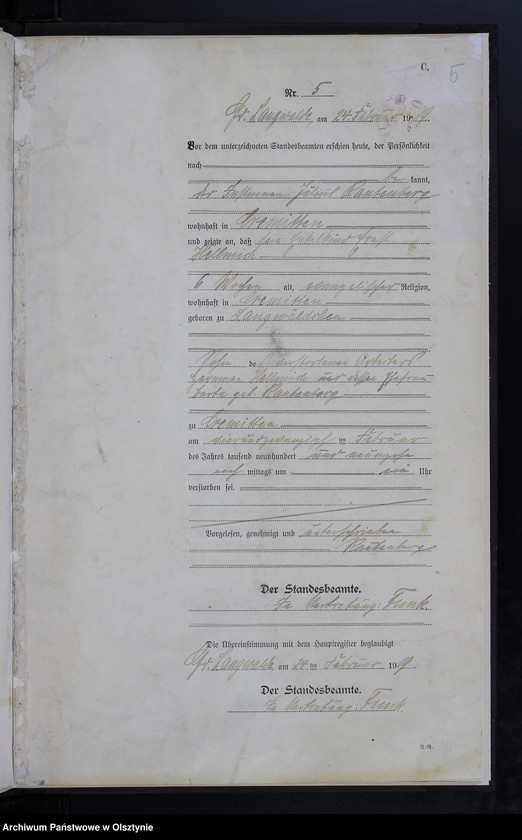 C.
5
Nr. 5
Gr. Langwalde am 24. Februar 1919.
Vor dem unterzeichneten Standesbeamten erschien heute, der Persönlichkeit
nach
be kannt,
der Julius Rautenberg
wohnhaft in Cremitten
und zeigte an, daß sein Enkelkind Ernst
Hellmich
6 Wochen alt, evangelischer Religion,
wohnhaft in Cremitten
geboren zu Langwäldchen
Sohn des verstorbenen Arbeiters
Hellmich und dessen Ehefrau
Berta geb. Rautenberg
zu Cremitten
am vierundzwanzigsten Februar
des Jahres tausend neunhundert und neunzehn
nach mittags um ein Uhr
verstorben sei.
Vorgelesen, genehmigt und unterschrieben
Rautenberg
Der Standesbeamte.
In Vertretung: Funk.
Die Übereinstimmung mit dem Hauptregister beglaubigt
Gr. Langwalde, am 24 ten Februar 1919.
Der Standesbeamte.
In Vertretung: Funk.
Archiwum Państwowe w Olsztynie